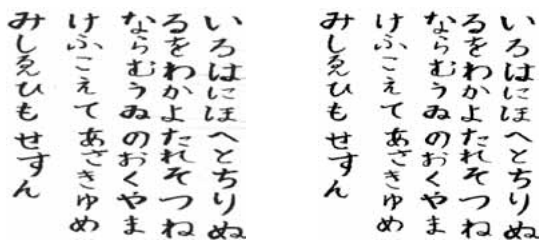 いろはにほへとちりぬ
るをわかよたれそつね
ならむうゐのおくやま
けふこえてあさきゆめ
みしゑひもせすん
いろはにほへとちりぬ
るをわかよたれそつね
ならむうゐのおくやま
けふこえてあさきゆめ
みしゑひもせすん